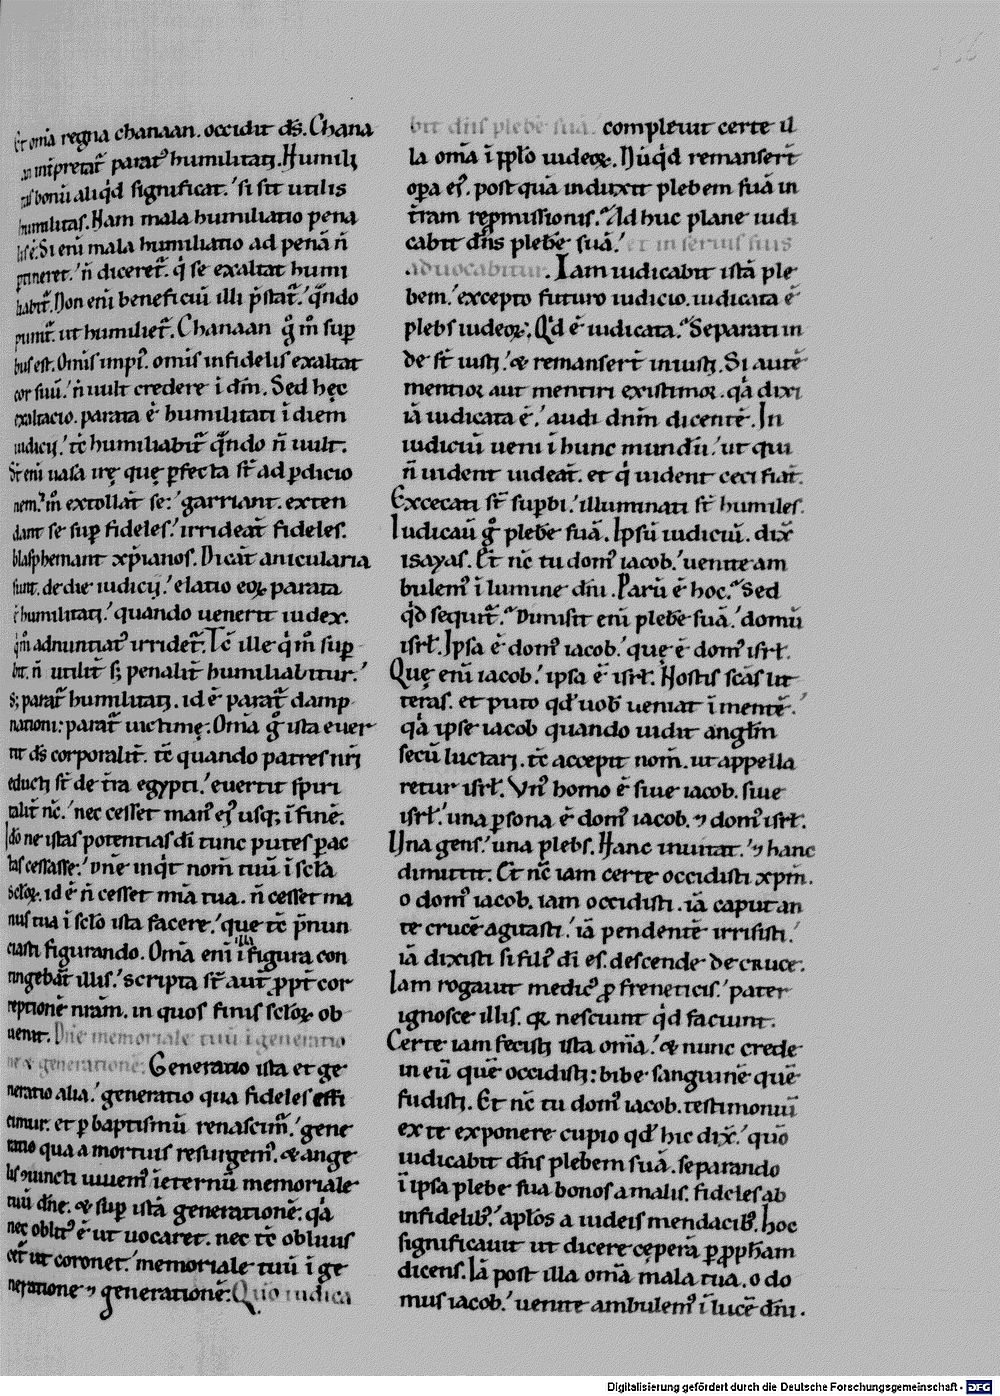 Et om̄a regna chanaan. occidit ds̄. Chana
an int̄pretat̄ parat᷒ humilitati. Humili
tas bonū aliqͥd significat.ʹ si sit utilis
humilitas. Nam mala humiliatio pena
lis ē. Si enī mala humiliatio ad penā n̄
ptineret.ʹ n̄ diceret̄. qͥ se exaltat humi
liabit̄. Non enī beneficiū illi p̄stat̄.ʹ qn̄do
punit̄. ut humiliet̄. Chanaan gͦ m̄ sup
bus est. Om̄is impi᷒. om̄is infidelis exaltat
cor suū.ʹ n̄ uult credere ī dm̄. Sed hęc
exaltacio. parata ē humilitati ī diem
iudicij.ʹ tc̄ humiliabit̄ qn̄do n̄ uult.
St̄ enī uasa irę quę pfecta st̄ ad pdicio
nem.ʹ m̄ extollāt se.ʹ garriant. exten
dant se sup fideles.ʹ irrideāt fideles.
blasphemant xp̄ianos. Dicāt anicularia
sunt. de die iudicij.ʹ elatio eoꝝ parata
ē humilitati.ʹ quando uenerit iudex.
qͥ m̄ adnuntiat᷒ irridet̄. Tc̄ ille qͥ m̄ sup
bit. n̄ utilit̄ s; penalit̄ humiliabitur.ʹ
s; parat̄ humilitati. id ē parat̄ damp
nationi: parat̄ uictimę. Om̄a gͦ ista euer
tit ds̄ corporalit̄. tc̄ quando patres nr̄i
educti st̄ de t̄ra egypti.ʹ euertit spiri
talit̄ nc̄.ʹ nec cesset man᷒ ei᷒ usq; ī finē.
Idō ne istas potentias dī tunc putes pac
tas cessasse.ʹ Dn̄e inqͥt nom̄ tuū ī scl̄a
scl̄oꝝ. id ē n̄ cesset mīa tua. n̄ cesset ma
nus tua ī scl̄o ista facere.ʹ que tc̄ p̄nun
ciasti figurando. Om̄a enī illa ī figura con
tingebāt illis.ʹ scripta st̄ aut̄ ꝓpt̄ cor
reptionē nr̄am. in quos finis scl̄oꝝ ob
uenit. Dn̄e memoriale tuū ī generatio
ne & generationē. Generatio ista et ge
neratio alia.ʹ generatio qua fideles effi
cimur. et p baptismū renascim᷒.ʹ gene
ratio qua a mortuis resurgem᷒. & ange
lis ꝯiuncti uiuem᷒ īeternū memoriale
tuū dn̄e. & sup istā generationē. qͣ
nec oblit᷒ ē ut uocaret. nec tc̄ obliuis
cet̄ ut coronet.ʹ memoriale tuū ī ge
neratione ⁊ generationē. Qm̄ iudica
bit dn̄s plebē suā.ʹ compleuit certe il
la om̄a ī pp̄lo iudeoꝝ. Nūqͥd remanserūt
oꝑa ei᷒. post quā induxit plebem suā in
t̄ram repmissionis. Ad huc plane iudi
cabit dn̄s plebē suā.ʹ et in seruis suis
aduocabitur. Iam iudicabit istā ple
bem.ʹ excepto futuro iudicio. iudicata ē
plebs iudeoꝝ. Qͥd ē iudicata. Separati in
de st̄ iusti.ʹ & remanserūt iniusti. Si autē
mentior aut mentiri existimor. qͣ dixi
iā iudicata ē.ʹ audi dnm̄ dicentē. In
iudiciū ueni ī hunc mundū.ʹ ut qui
n̄ uident uideāt. et qͥ uident ceci fiāt.
Excecati st̄ suꝑbi.ʹ illuminati st̄ humiles.
Iudicauit gͦ plebē suā. Ipsū iudiciū. dix̄
isayas. Et nc̄ tu dom᷒ iacob.ʹ uenite am
bulem᷒ ī lumine dn̄i. Parū ē hoc. Sed
qͥd sequit̄. Dimisit enī plebē suā.ʹ domū
isrl̄. Ipsa ē dom᷒ iacob.ʹ quę ē dom᷒ isrl̄.
Quę enī iacob.ʹ ipsa ē isrl̄. Nostis scās lit
teras. et puto qd̄ uob̄ ueniat ī mentē.ʹ
qͣ ipse iacob quando uidit angl̄m
secū luctari. tc̄ accepit nom̄. ut appella
retur isrl̄. Vn᷒ homo ē siue iacob. siue
isrl̄.ʹ una ꝑsona ē dom᷒ iacob. ⁊ dom᷒ isrl̄.
Una gens.ʹ una plebs. Hanc inuitat.ʹ ⁊ hanc
dimittit. Et nc̄ iam certe occidisti xpm̄.
o dom᷒ iacob. iam occidisti. iā caput an
te crucē agitasti.ʹ iā pendentē irrisisti.ʹ
iā dixisti si fili᷒ dī es. descende de cruce.
Iam rogauit medic᷒ ꝓ freneticis.ʹ pater
ignosce illis. qꝛ nesciunt qͥd faciunt.
Certe iam fecisti ista om̄a.ʹ & nunc crede
in eū quē occidisti: bibe sanguinē quē
fudisti. Et nc̄ tu dom᷒ iacob. testimoniū
ex te exponere cupio qd̄ hic dix̄.ʹ quō
iudicabit dn̄s plebem suā. separando
ī ipsa plebe sua bonos a malis. fideles ab
infidelib᷒.ʹ apl̄os a iudeis mendacib᷒. hoc
significauit ut dicere cęperā ꝑ ꝓpħam
dicens. Iā post illa om̄a mala tua. o do
mus iacob.ʹ uenite ambulem᷒ ī lucē dn̄i.
Digitalisierung gefördert durch die Deutsche Forschungsgemeinschaft - DFG